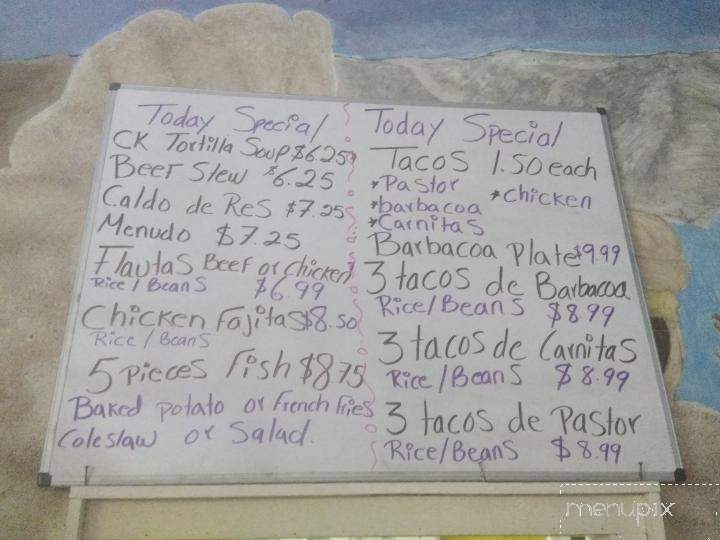 Today Special
CK Tortilla Soup $6.25
Beef Stew $6.25
Caldo de Res $7.25
Menudo $7.25
Flautas Beef or Chicken
Rice/Beans $6.99
Chicken Fajitas $8.50
Rice/Beans
5 Pieces Fish $8.75
Baked potato or French Fries
Coleslaw or Salad.
Today Special
Tacos 1.50 each
*Pastor *chicken
*barbacoa
*Carnitas
Barbacoa Plate $9.99
3 tacos de Barbacoa
Rice/Beans $8.99
3 tacos de Carnitas
Rice/Beans $8.99
3 tacos de Pastor
Rice/Beans $8.99
menupix